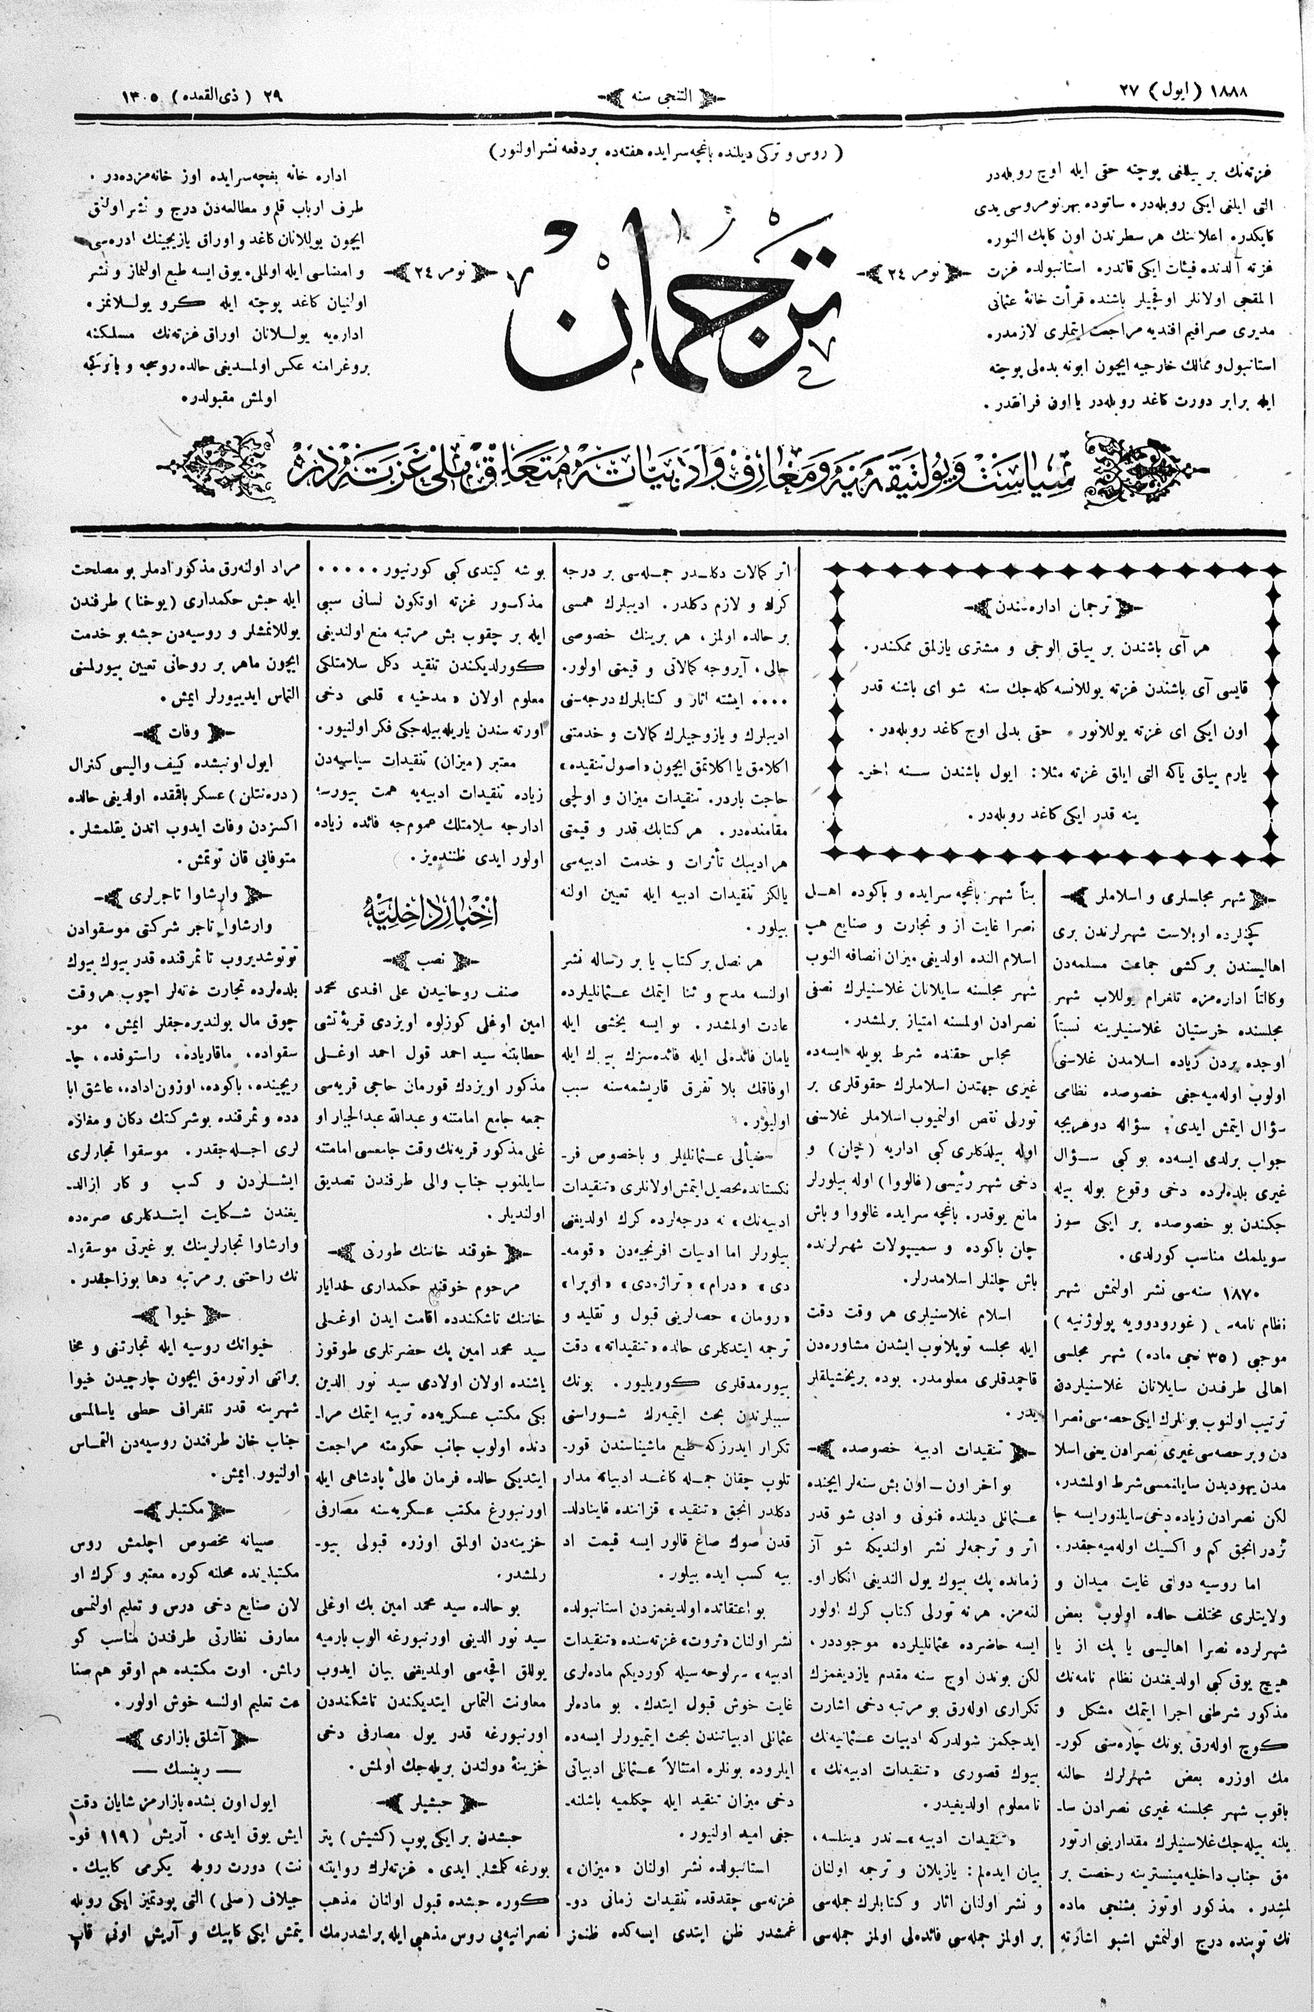 ١٨٨٨ (ايول) ٢٧
التنجى سنه
٢٩ (ذى القعده) ١٣٠٥
(روس و تركى ديلنده باغچه سرايده هفته ده بر دفعه نشر اولنور)
غزته نك بر ييللغى پوچته حقى ايله اوچ روبله در
التى ايلغى ايكى روبله در. ساتوده بهر نومروسى يدى
كاپكدر. اعلاننك هر سطرندن اون كاپك النور.
غزته آلدنده فيئات ايكى قاتدر. استانبولده غزت
المقجى اولانلر اوقجيلر باشنده قرأت خانهٔ عثمانى
مديرى صرافيم افنديه مراجعت ايتملرى لازمدر.
استانبول و ممالك خارجيه ايچون ابونه بدلى پوچته
ايله برابر دورت كاغد روبله در يا اون فرانقدر.
نومر ٢٤
ترجمان
نومر ٢٤
اداره خانه بغچه سرايده اوز خانه مزده در.
طرف ارباب قلم و مطالعه دن درج و نشر اولنق
ايچون يوللانان كاغد و اوراق يازيجينك ادره سى
و امضاسى ايله اولملى. يوق ايسه طبع اولنماز و نشر
اولنيان كاغد پوچته ايله كرو يوللانمز.
اداره يه يوللانان اوراق غزته نك مسلكنه
پروغرامنه عكس اولمديغى حالده روسجه و يا تركجه
اولمش مقبولدر.
سياست و پولتيقه يه و معارف و ادبياته متعلق ملى غزته در
ترجمان اداره سندن
هر آى باشندن بر ييلق الوجى و مشترى يازلمق ممكندر.
قايسى آى باشندن غزته يوللانسه كله جك سنه شو اى باشنه قدر
اون ايكى اى غزته يوللانور. حقى بدلى اوچ كاغد روبله در.
يارم ييلق ياكه التى ايلق غزته مثلا: ايول باشندن سنه اخر-
ينه قدر ايكى كاغد روبله در.
شهر مجلسلرى و اسلاملر
كچنلرده اوبلاست شهرلرندن برى
اهاليسندن بر كشى جماعت مسلمه دن
وكالتاً اداره مزه تلغرام يوللاب شهر
مجلسنده خرستيان غلاسنيلرينه نسبتاً
اوجده بردن زياده اسلامدن غلاسنى
اولوب اوله ميه جغى خصوصده نظامى
سؤال ايتمش ايدى: سؤاله دوغريجه
جواب برلدى ايسه ده بو كبى سؤال
غيرى بلده لرده دخى وقوع بوله بيله
جكندن بو خصوصده بر ايكى سوز
سويلمك مناسب كورلدى.
١٨٧٠ سنه سى نشر اولنمش شهر
نظام نامه سى (غورودوويه پولوژنيه)
موجبى (٣٥ نجى ماده) شهر مجلسى
اهالى طرفندن سايلانان غلاسنيلردن
ترتيب اولنوب بونلرك ايكى حصه سى نصرا
دن و بر حصه سى غيرى نصرادن يعنى اسلا
مدن يهوديدن سايلانمسى شرط اولمشدر.
لكن نصرادن زياده دخى سايلنور ايسه جا
ئزدر انجق كم و اكسيك اوله ميه جقدر.
اما روسيه دولتى غايت ميدان و
ولايتلرى مختلف حالده اولوب بعض
شهرلرده نصرا اهاليسى يا پك از يا
هيچ يوق كبى اولديغندن نظام نامه نك
مذكور شرطنى اجرا ايتمك مشكل و
كوچ اوله رق بونك چاره سنى كور-
مك اوزره بعض شهرلرك حالنه
باقوب شهر مجلسنه غيرى نصرادن سا-
يلنه بيله جك غلاسنيلرك مقدارينى ارتور
مق جناب داخليه مينسترينه رخصت بر
لمشدر. مذكور اوتوز بشنجى ماده
نك توبنده درج اولنمش اشبو اشارته
بناً شهر باغچه سرايده و باكوده اهل
نصرا غايت از و تجارت و صنايع هپ
اسلام النده اولديغى ميزان انصافه النوب
شهر مجلسنه سايلانان غلاسنيلرك نصفى
نصرادن اولمسنه امتياز برلمشدر.
مجلس حقنده شرط بويله ايسه ده
غيرى جهتدن اسلاملرك حقوقلرى بر
تورلى نقص اولنميوب اسلاملر غلاسنى
اوله بيلدكلرى كبى اداريه (چمان) و
دخى شهر رئيسى (غالووا) اوله بيلورلر
مانع يوقدر. باغچه سرايده غالووا و باش
چان باكوده و سميپولات شهرلرنده
باش چلنلر اسلامدرلر.
اسلام غلاسنيلرى هر وقت دقت
ايله مجلسه توپلانوب ايشدن مشاوره دن
قاچمدقلرى معلومدر. بوده بر يخشيلقلر
يدر.
تنقيدات ادبيه خصوصده
بو اخر اون – اون بش سنه لر ايچنده
عثمانلى ديلنده فنونى و ادبى شو قدر
اثر و ترجمه لر نشر اولنديكه شو آز
زمانده پك بيوك يول الندیغى انكار او-
لنه مز. هر نه تورلى كتاب كرك اولور
ايسه حاضرده عثمانليلرده موجوددر.
لكن بوندن اوج سنه مقدم يازديغمزك
تكرارى اوله رق بو مرتبه دخى اشارت
ايده جكمز شولدركه ادبيات عثمانيه نك
بيوك قصورى «تنقيدات ادبيه نك»
نا معلوم اولديغيدر.
«تنقيدات ادبيه» – ندر دينلسه،
بيان ايده لم: يازيلان و ترجمه اولنان
و نشر اولنان اثار و كتابلرك جمله سى
بر اولمز جمله سى فائده لى اولمز جمله سى
اثر كمالات دكلدر جمله سى بر درجه
كرك و لازم دكلدر. اديبلرك همسى
بر حالده اولمز، هر برينك خصوصى
حالى، آيروجه كمالاتى و قيمتى اولور.
.... ايشته اثار و كتابلرك درجه سنى
اديبلرك و يازوجيلرك كمالات و خدمتنى
اكلامق يا اكلاتمق ايچون «اصول تنقيده»
حاجت باردر. تنقيدات ميزان و اولچى
مقامنده در. هر كتابك قدر و قيمتى
هر اديبك تأثرات و خدمت ادبيه سى
يالكز تنقيدات ادبيه ايله تعيين اولنه
بيلور.
هر نصل بر كتاب يا بر رساله نشر
اولنسه مدح و ثنا ايتمك عثمانليلرده
عادت اولمشدر. بو ايسه يخشى ايله
يامان فائده لى ايله فائده سزك بيوك ايله
اوفاقك بلا تفرق قاريشمه سنه سبب
اوليور.
ضيالى عثمانليلر و باخصوص فر-
نكستانده تحصيل ايتمش اولانلرى «تنقيدات
ادبيه نك» نه درجه لرده كرك اولديغنى
بيلورلر اما ادبيات افرنجيه دن «قومه-
دى» «درام» «تراژه دى» «اوپرا»
«رومان» حصه لرينى قبول و تقليد و
ترجمه ايتدكلرى حالده «تنقيداته» دقت
بيورمدقلرى كوريليور. بونك
سببلرندن بحث ايتميه رك شوراسنى
تكرار ايدرزكه طبع ماشيناسندن قور-
تلوب چقان جمله كاغد ادبياته مدار
دكلدر انجق «تنقيد» قزاننده قاينادلد-
قدن صوك صاغ قالور ايسه قيمت اد
بيه كسب ايده بيلور.
بو اعتقادده اولديغمزدن استانبولده
نشر اولنان «ثروت» غزته سنده «تنقيدات
ادبيه» سرلوحه سيله كورديكم ماده لرى
غايت خوش قبول ايتدك. بو ماده لر
عثمانلى ادبياتندن بحث ايتميورلر ايسه ده
ايلروده بونلره امتثالاً عثمانلى ادبياتى
دخى ميزان تنقيد ايله چكلميه باشلنه-
جغى اميد اولنيور.
استانبولده نشر اولنان «ميزان»
غزته سى چقدقده تنقيدات زمانى دو-
غمشدر ظن ايتدى ايسه كده ظنمز
بوشه كيتدى كبى كورنيور.....
مذكور غزته اوتكون لسانى سببى
ايله بر چقوب بش مرتبه منع اولنديغنى
كورلديكندن تنقيد دكل سلامتلكى
معلوم اولان «مدحيه» قلمى دخى
اورته سندن ياريله بيله جكى فكر اولنيور.
معتبر (ميزان) تنقيدات سياسيه دن
زياده تنقيدات ادبيه يه همت بيورسه
ادارجه سلامتلك عمومجه فائده زياده
اولور ايدى ظننده يز.
اخبار داخليه
نصب
صنف روحانيدن على افندى محمد
امين اوغلى كوزلوه اويزدى قريه تشى
خطابتنه سيد احمد قول احمد اوغلى
مذكور اويزدك قورمان حاجى قريه سى
جمعه جامع امامتنه و عبدالله عبدالجبار او
غلى مذكور قريه نك وقت جامعسى امامتنه
سايلنوب جناب والى طرفندن تصديق
اولنديلر.
خوقند خاننك طورنى
مرحوم خوقند حكمدارى خدايار
خاننك تاشكندده اقامت ايدن اوغلى
سيد محمد امين بك حضرتلرى طوقوز
ياشنده اولان اولادى سيد نور الدين
بكى مكتب عسكريه ده تربيه ايتمك مرا-
دنده اولوب جانب حكومته مراجعت
ايتديكى حالده فرمان عالىٔ پادشاهى ايله
اورنبورغ مكتب عسكريه سنه مصارفى
خزينه دن اولمق اوزره قبولى بيو-
رلمشدر.
بو حالده سيد محمد امين بك اوغلى
سيد نور الدينى اورنبورغه الوب بارميه
يوللق اقچه سى اولمديغنى بيان ايدوب
معاونت التماس ايتديكندن تاشكنددن
اورنبورغه قدر يول مصارفى دخى
خزينهٔ دولتدن بريله جك اولمش.
حبشيلر
حبشدن بر ايكى پوپ (كشيش) پتر
بورغه كلمشلر ايدى. غزته لرك روايتنه
كوره حبشده قبول اولنان مذهب
نصرانيه يى روس مذهبى ايله براشدرمك
مراد اولنه رق مذكور ادملر بو مصلحت
ايله حبش حكمدارى (يوخنا) طرفندن
يوللانمشلر و روسيه دن حبشه بو خدمت
ايچون ماهر بر روحانى تعيين بيورلمسنى
التماس ايدييورلر ايمش.
وفات
ايول اونبشده كييف واليسى كنرال
(دره نتلن) عسكر باقمقده اولديغى حالده
اكسزدن وفات ايدوب اتدن يقلمشلر.
متوفايى قان توتمش.
وارشاوا تاجرلرى
وارشاوا تاجر شركتى موسقوادن
توتوشديروب تا ثمرقنده قدر بيوك بيوك
بلده لرده تجارت خانه لر اچوب هر وقت
چوق مال بولنديره جقلر ايمش. مو-
سقواده، ماقارياده، راستوفده، چا-
ريچينده، باكوده، اوزون اداده، عاشق ابا
دده و ثمرقنده بو شركتك دكان و مغازه
لرى اجله جقدر. موسقوا تجارلرى
ايشلردن و كسب و كار ازالد-
يغندن شكايت ايتدكلرى صره ده
وارشاوا تجارلرينك بو غيرتى موسقوا-
نك راحتنى بر مرتبه دها بوزاجقدر.
خيوا
خيوانك روسيه ايله تجارتنى و مخا
براتنى ارتورمق ايچون چارجيدن خيوا
شهرينه قدر تلغراف خطى ياسالمسى
جناب خان طرفندن روسيه دن التماس
اولنيور ايمش.
مكتبلر
صبيانه مخصوص اچلمش روس
مكتبلرنده محلنه كوره معتبر و كرك او
لان صنايع دخى درس و تعليم اولنمسى
معارف نظارتى طرفندن مناسب كو
رلمش. اوت مكتبده هم اوقو هم صنا
عت تعليم اولنسه خوش اولور.
آشلق بازارى
— ريبنسك —
ايول اون بشده بازارمز شايان دقت
ايش يوق ايدى. آريش (١١٩ فو-
نت) دورت روبله يكرمى كاپيك.
جيلاف (صلى) التى پودتميز ايكى روبله
يتمش ايكى كاپيك و آريش اونى قاپ